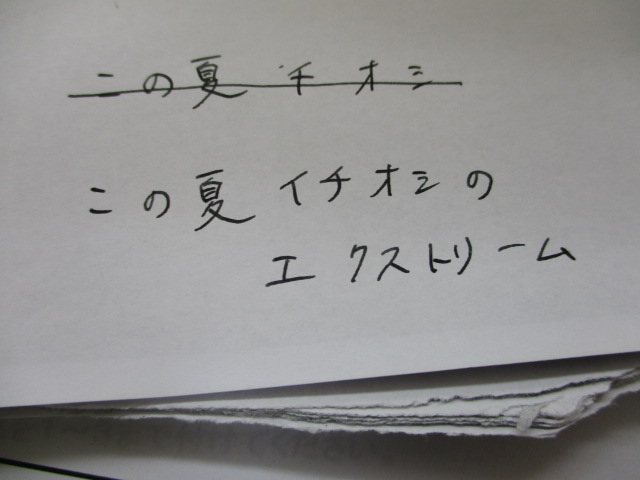 この夏 チオシ
この夏 イチオシの
エクストリーム